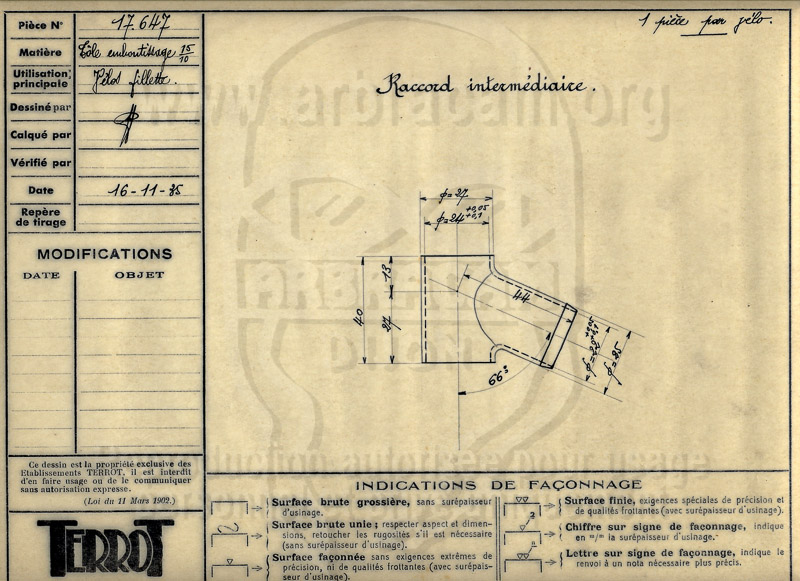 Pièce N° 17.647
Matière Tôle emboutissage 15/10
Utilisation principale Vélos fillette.
Dessiné par
Calqué par
Vérifié par
Date 16-11-35
Repère de tirage
MODIFICATIONS
DATE OBJET
Ce dessin est la propriété exclusive des
Etablissements TERROT, il est interdit
d'en faire usage ou de le communiquer
sans autorisation expresse.
(Loi du 11 Mars 1902.)
TERROT
1 pièce par vélo.
Raccord intermédiaire.
ϕ=27
ϕ=24 +0,05 +0,1
13
40
27
44
66°
ϕ=25
INDICATIONS DE FAÇONNAGE
Surface brute grossière, sans surépaisseur
d'usinage.
Surface brute unie ; respecter aspect et dimen-
sions, retoucher les rugosités s'il est nécessaire
(sans surépaisseur d'usinage).
Surface façonnée sans exigences extrêmes de
précision, ni de qualités frottantes (avec surépais-
seur d'usinage).
Surface finie, exigences spéciales de précision et
de qualités frottantes (avec surépaisseur d'usinage).
3
Chiffre sur signe de faconnage, indique
en m/m la surépaisseur d'usinage.
Lettre sur signe de façonnage, indique le
renvoi à un nota nécessaire plus précis.
www.arbracam.org